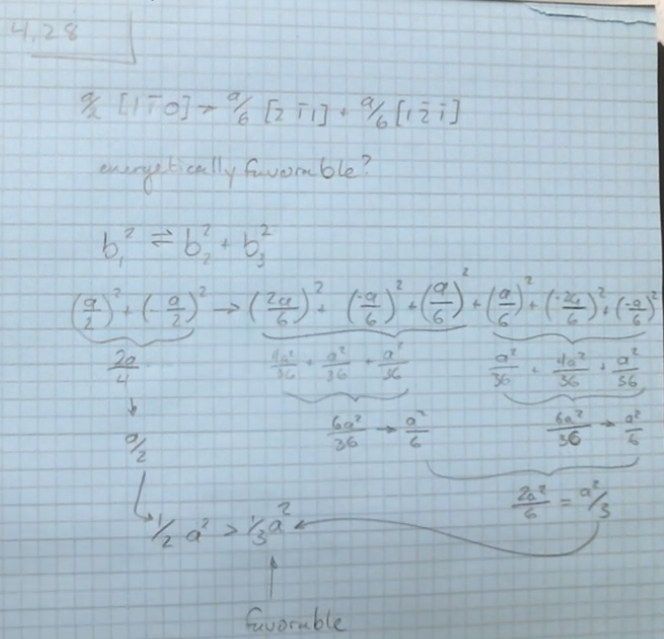 4.28
a/2 [1 1̄ 0] → a/6 [2 1̄ 1] + a/6 [1 2̄ 1̄]
energetically favorable?
b₁² ⇌ b₂² + b₃²
(a/2)² + (-a/2)² → (2a/6)² + (-a/6)² + (a/6)² + (a/6)² + (-2a/6)² + (-a/6)²
2a/4 4a²/36 + a²/36 + a²/36 a²/36 + 4a²/36 + a²/36
↓ 6a²/36 → a²/6 6a²/36 → a²/6
a/2
2a²/6 = a²/3
1/2 a² > 1/3 a²
↑
favorable